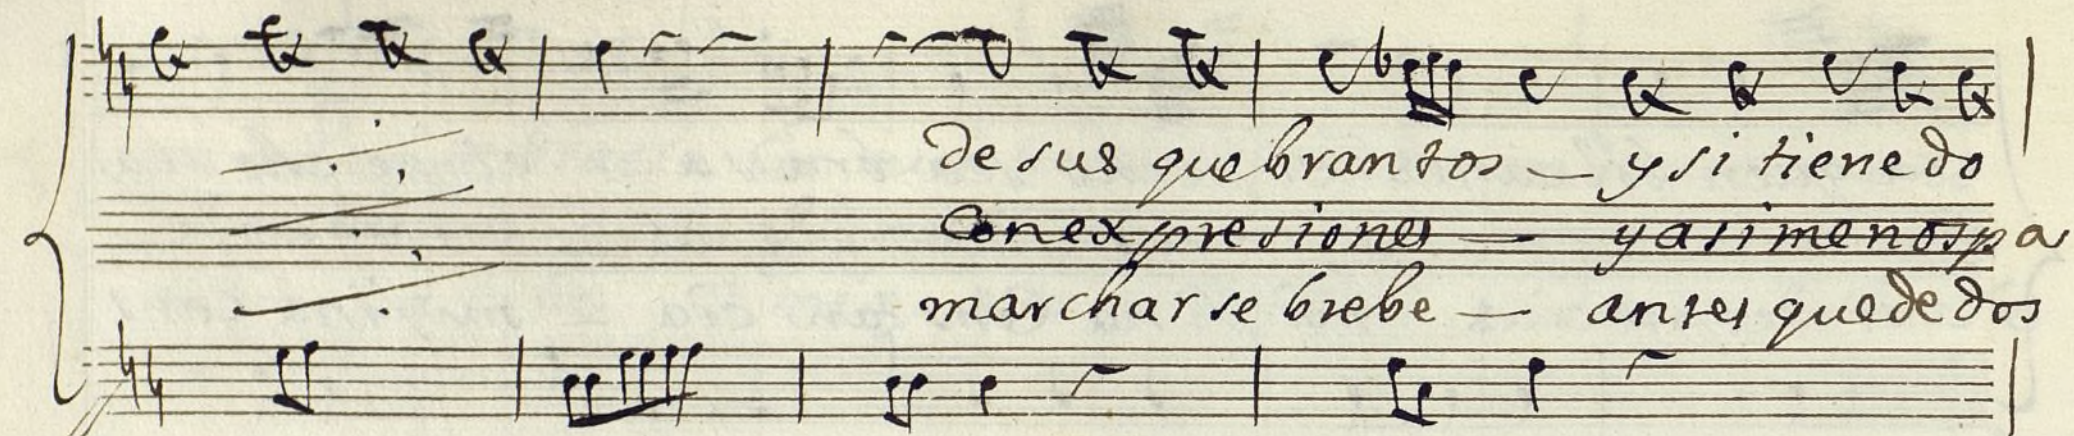 de sus quebrantos – y si tiene do
Con expresiones – y asi menos pa
marcharse brebe – antes que de dos